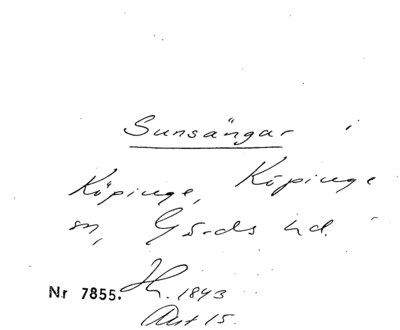 Sunsängar i
Köpinge, Köpinge
sn, Gärds hd.
Nr 7855. Hl. 1843
Akt 15.